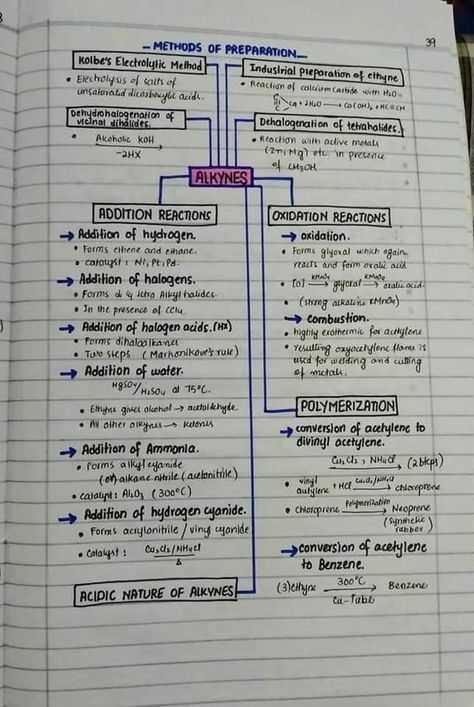 39
— METHODS OF PREPARATION —
Kolbe's Electrolytic Method
• Electrolysis of salts of
unsaturated dicarboxylic acids.
Industrial preparation of ethyne
• Reaction of calcium carbide with H₂O
C
||| Ca + 2H₂O → Ca(OH)₂ + HC≡CH
C
Dehydrohalogenation of
vicinal dihalides.
• Alcoholic KOH
-2HX
Dehalogenation of tetrahalides.
• Reaction with active metals
(Zn, Mg) etc in presence
of CH₃OH
ALKYNES
ADDITION REACTIONS
→ Addition of hydrogen.
• Forms ethene and ethane.
• catalyst: Ni, Pt, Pd.
→ Addition of halogens.
• Forms di & tetra Alkyl halides.
• In the presence of CCl₄.
→ Addition of halogen acids. (HX)
• Forms dihaloalkanes
• Two steps (Markonikove's rule)
→ Addition of water.
HgSO₄/H₂SO₄ at 75°C.
• Ethyne gives alcohol → acetaldehyde.
• All other alkynes → ketones
→ Addition of Ammonia.
• Forms alkyl cyanide
(or) alkane nitrile (acetonitrile)
• Catalyst: Al₂O₃ (300°C)
→ Addition of hydrogen cyanide.
• Forms acrylonitrile / vinyl cyanide
• Catalyst: Cu₂Cl₂/NH₄Cl
Δ
ACIDIC NATURE OF ALKYNES
OXIDATION REACTIONS
→ oxidation.
• Forms glyoxal which again
reacts and form oxalic acid
• [O] KMnO₄→ glyoxal KMnO₄→ oxalic acid.
• (strong alkaline KMnO₄)
→ combustion.
• highly exothermic for acetylene
• resulting oxyacetylene flame is
used for welding and cutting
of metals.
POLYMERIZATION
→ conversion of acetylene to
divinyl acetylene.
Cu₂Cl₂, NH₄Cl → (2 steps)
• vinyl acetylene + HCl Cu₂Cl₂/NH₄Cl→ chloroprene
• Chloroprene Polymerization→ Neoprene
(synthetic
rubber)
→ conversion of acetylene
to Benzene.
(3) ethyne 300°C→ Benzene
Cu-Tube